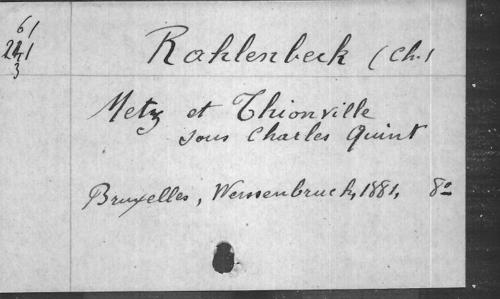 61
241
3
Rahlenbeck (Ch.)
Metz et Thionville
sous Charles Quint
Bruxelles, Weissenbruch, 1881, 8º